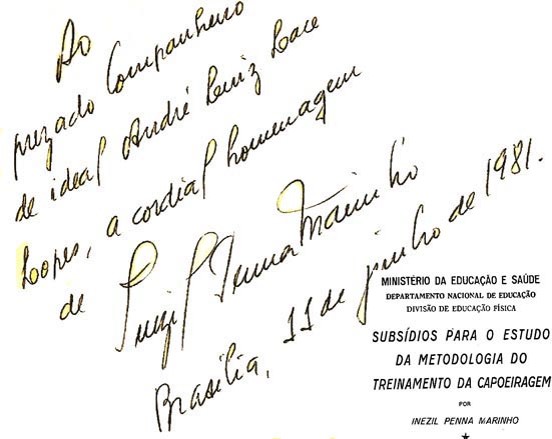 Ao
prezado Companheiro
de ideal André Luiz Lace
Lopes, a cordial homenagem
de Inezil Penna Marinho
Brasília, 11 de junho de 1981.
MINISTÉRIO DA EDUCAÇÃO E SAÚDE
DEPARTAMENTO NACIONAL DE EDUCAÇÃO
DIVISÃO DE EDUCAÇÃO FÍSICA
SUBSÍDIOS PARA O ESTUDO
DA METODOLOGIA DO
TREINAMENTO DA CAPOEIRAGEM
POR
INEZIL PENNA MARINHO